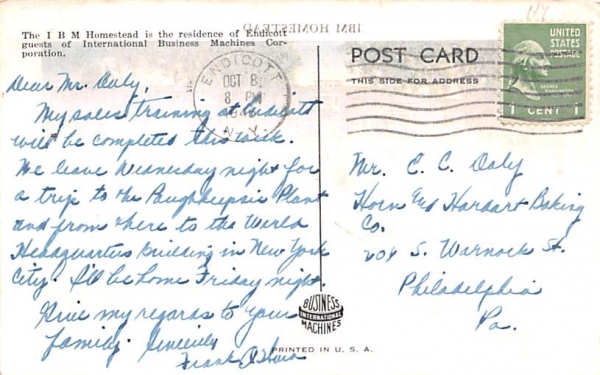 The I B M Homestead is the residence of Endicott
guests of International Business Machines Cor-
poration.
IBM HOMESTEAD
Dear Mr. Daly,
My sales training at Endicott
will be completed this week.
We leave Wednesday night for
a trip to the Poughkeepsie Plant
and from there to the World
Headquarters Building in New York
City. I'll be home Friday night.
Give my regards to your
family. Sincerely
Frank
ENDICOTT
OCT 8
8 PM
N.Y.
POST CARD
THIS SIDE FOR ADDRESS
UNITED
STATES
POSTAGE
1 CENT 1
Mr. C. C. Daly
Horn and Hardart Baking
Co.
S. Warnock St.
Philadelphia
Pa.
BUSINESS
INTERNATIONAL
MACHINES
PRINTED IN U. S. A.